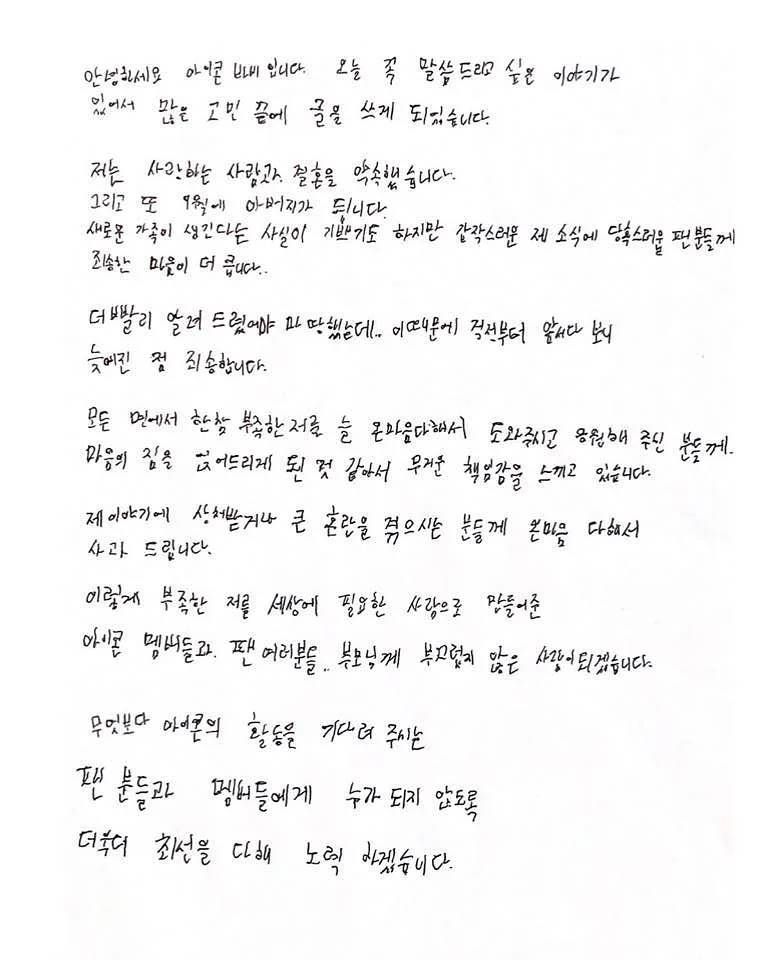 안녕하세요 아이콘 바비 입니다. 오늘 꼭 말씀드리고 싶은 이야기가
있어서 많은 고민 끝에 글을 쓰게 되었습니다.
저는 사랑하는 사람과 결혼을 약속했습니다.
그리고 또 9월에 아버지가 됩니다.
새로운 가족이 생긴다는 사실이 기쁘기도 하지만 갑작스러운 제 소식에 당혹스러울 팬분들께
죄송한 마음이 더 큽니다..
더 빨리 알려 드렸어야 마땅했는데.. 이 때문에 걱정부터 앞서다 보니
늦어진 점 죄송합니다.
모든 면에서 한참 부족한 저를 늘 온마음다해서 도와주시고 응원해 주신 분들께.
마음의 짐을 얹어드리게 된 것 같아서 무거운 책임감을 느끼고 있습니다.
제 이야기에 상처받거나 큰 혼란을 겪으시는 분들께 온마음 다해서
사과 드립니다.
이렇게 부족한 저를 세상에 필요한 사람으로 만들어준
아이콘 멤버들과. 팬 여러분들.. 부모님께 부끄럽지 않은 사람이되겠습니다.
무엇보다 아이콘의 활동을 기다려 주시는
팬 분들과 멤버들에게 누가 되지 않도록
더욱더 최선을 다해 노력 하겠습니다.